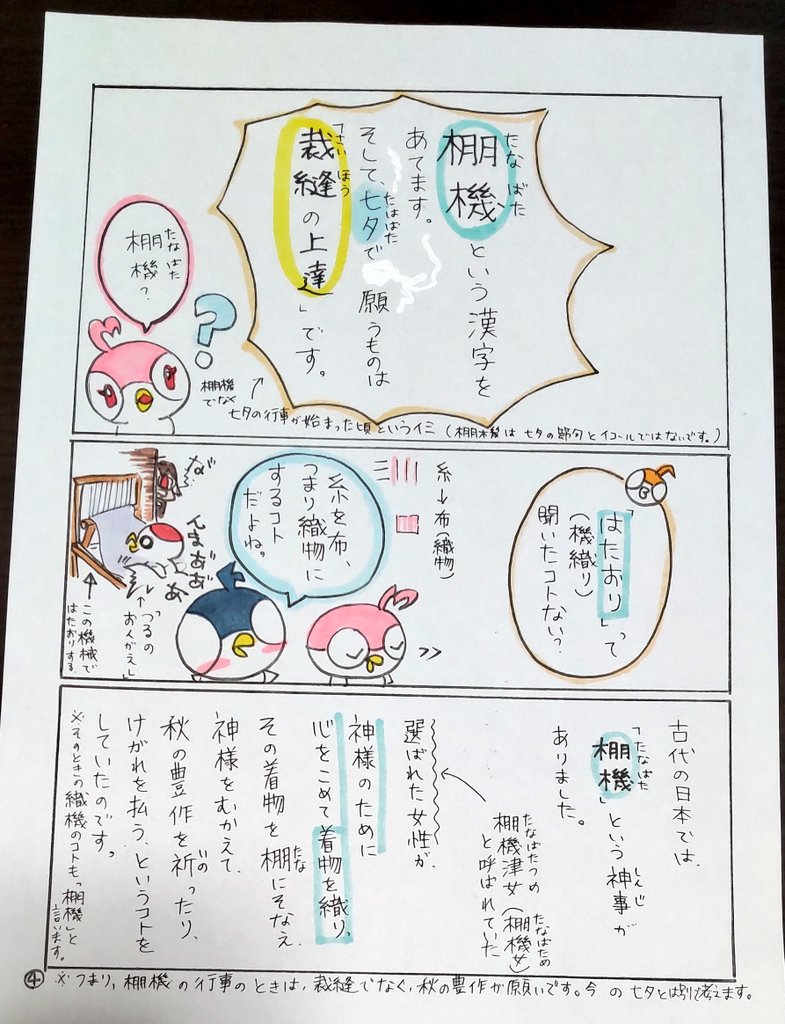 棚機という漢字を
たなばた
あてます。
そして、七夕で願うものは
たはばた
「裁縫の上達」です。
さいほう
棚機?
たなはた
?
↑棚機でなく七夕の行事が始まった頃というイミ(棚機は七夕の節句とイコールではないです。)
「はたおり」って
(機織り)
聞いたコトない?
糸→布(織物)
糸を布、
つまり織物に
するコト
だよね。
な
んまあぁぁ
↑「つるの
おんがえし」
↑この機械で
はたおりする。
古代の日本では、
「棚機」という神事が
たなばた
しんじ
ありました。
棚機津女(棚機女)
たなはたつめ
たなばため
と呼ばれていた
選ばれた女性が、
神様のために
心をこめて着物を織り、
その着物を棚にそなえ、
たな
神様をむかえて、
秋の豊作を祈ったり、
いの
けがれを払う、というコトを
していたのです。
※そのときの織機のコトも「棚機」と
言います。
④ ※つまり、棚機の行事のときは、裁縫でなく、秋の豊作が願いです。今の七夕とは別で考えます。